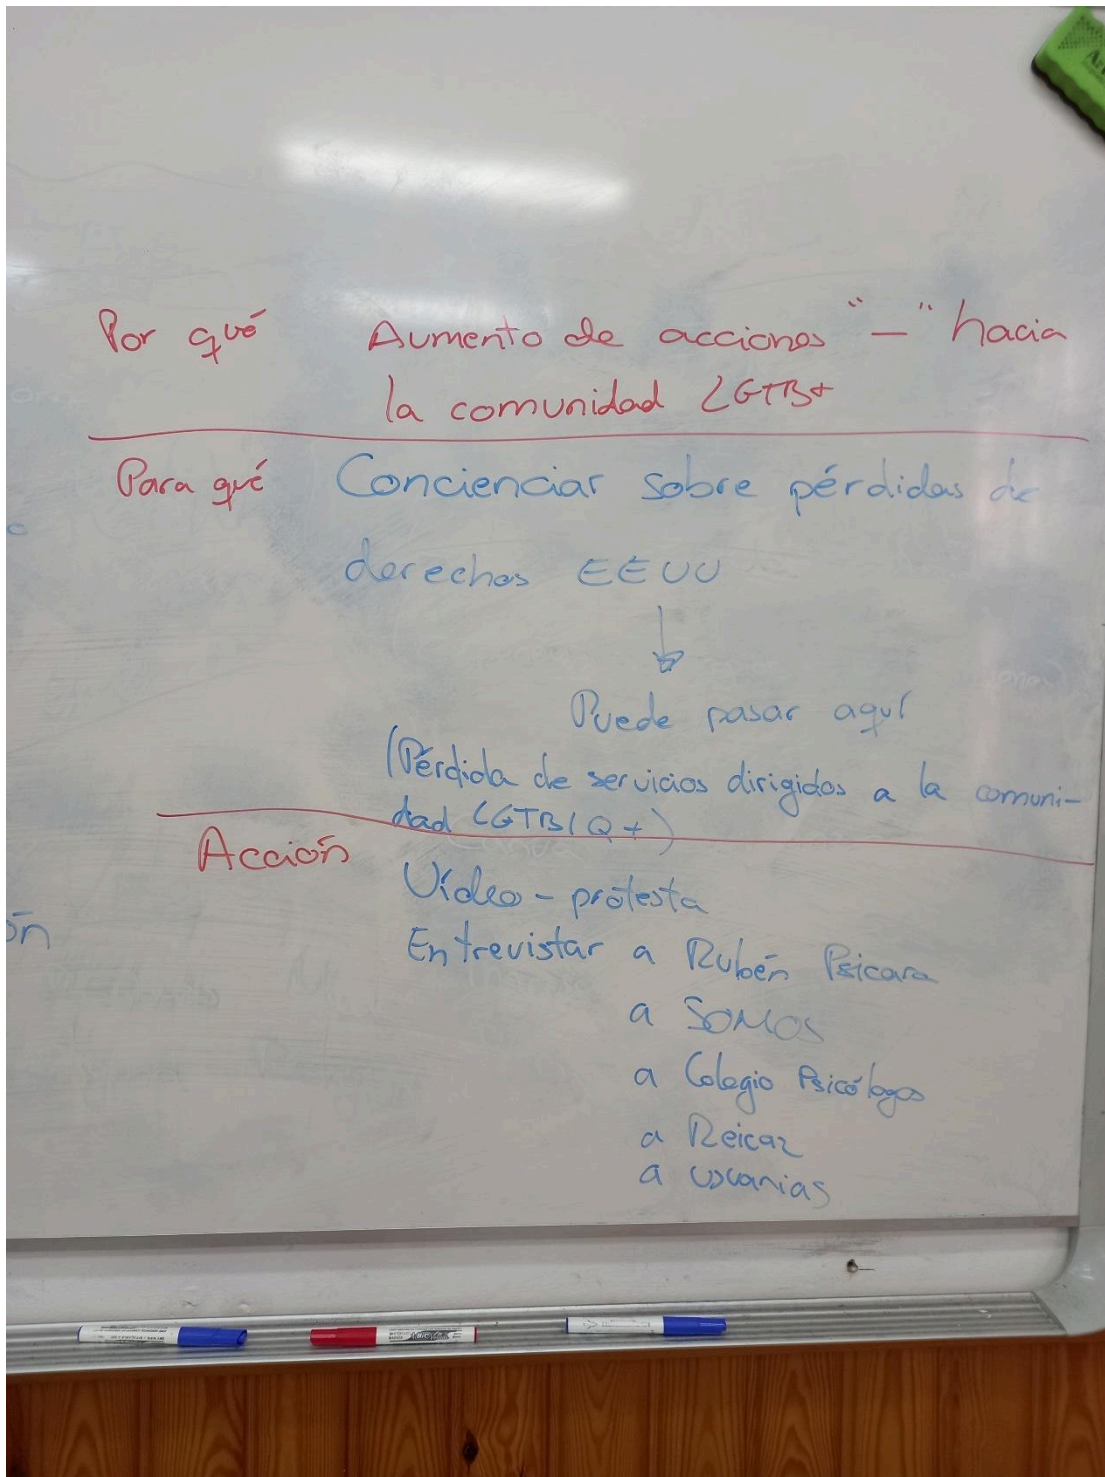 Por qué Aumento de acciones "-" hacia
la comunidad LGTB+
Para qué Concienciar sobre pérdidas de
derechos EEUU
↓
Puede pasar aquí
(Pérdida de servicios dirigidos a la comuni-
dad LGTBIQ+)
Acción
Vídeo - protesta
ón
Entrevistar a Rubén Psicara
a SOMOS
a Colegio Psicólogos
a Reicaz
a usuarias